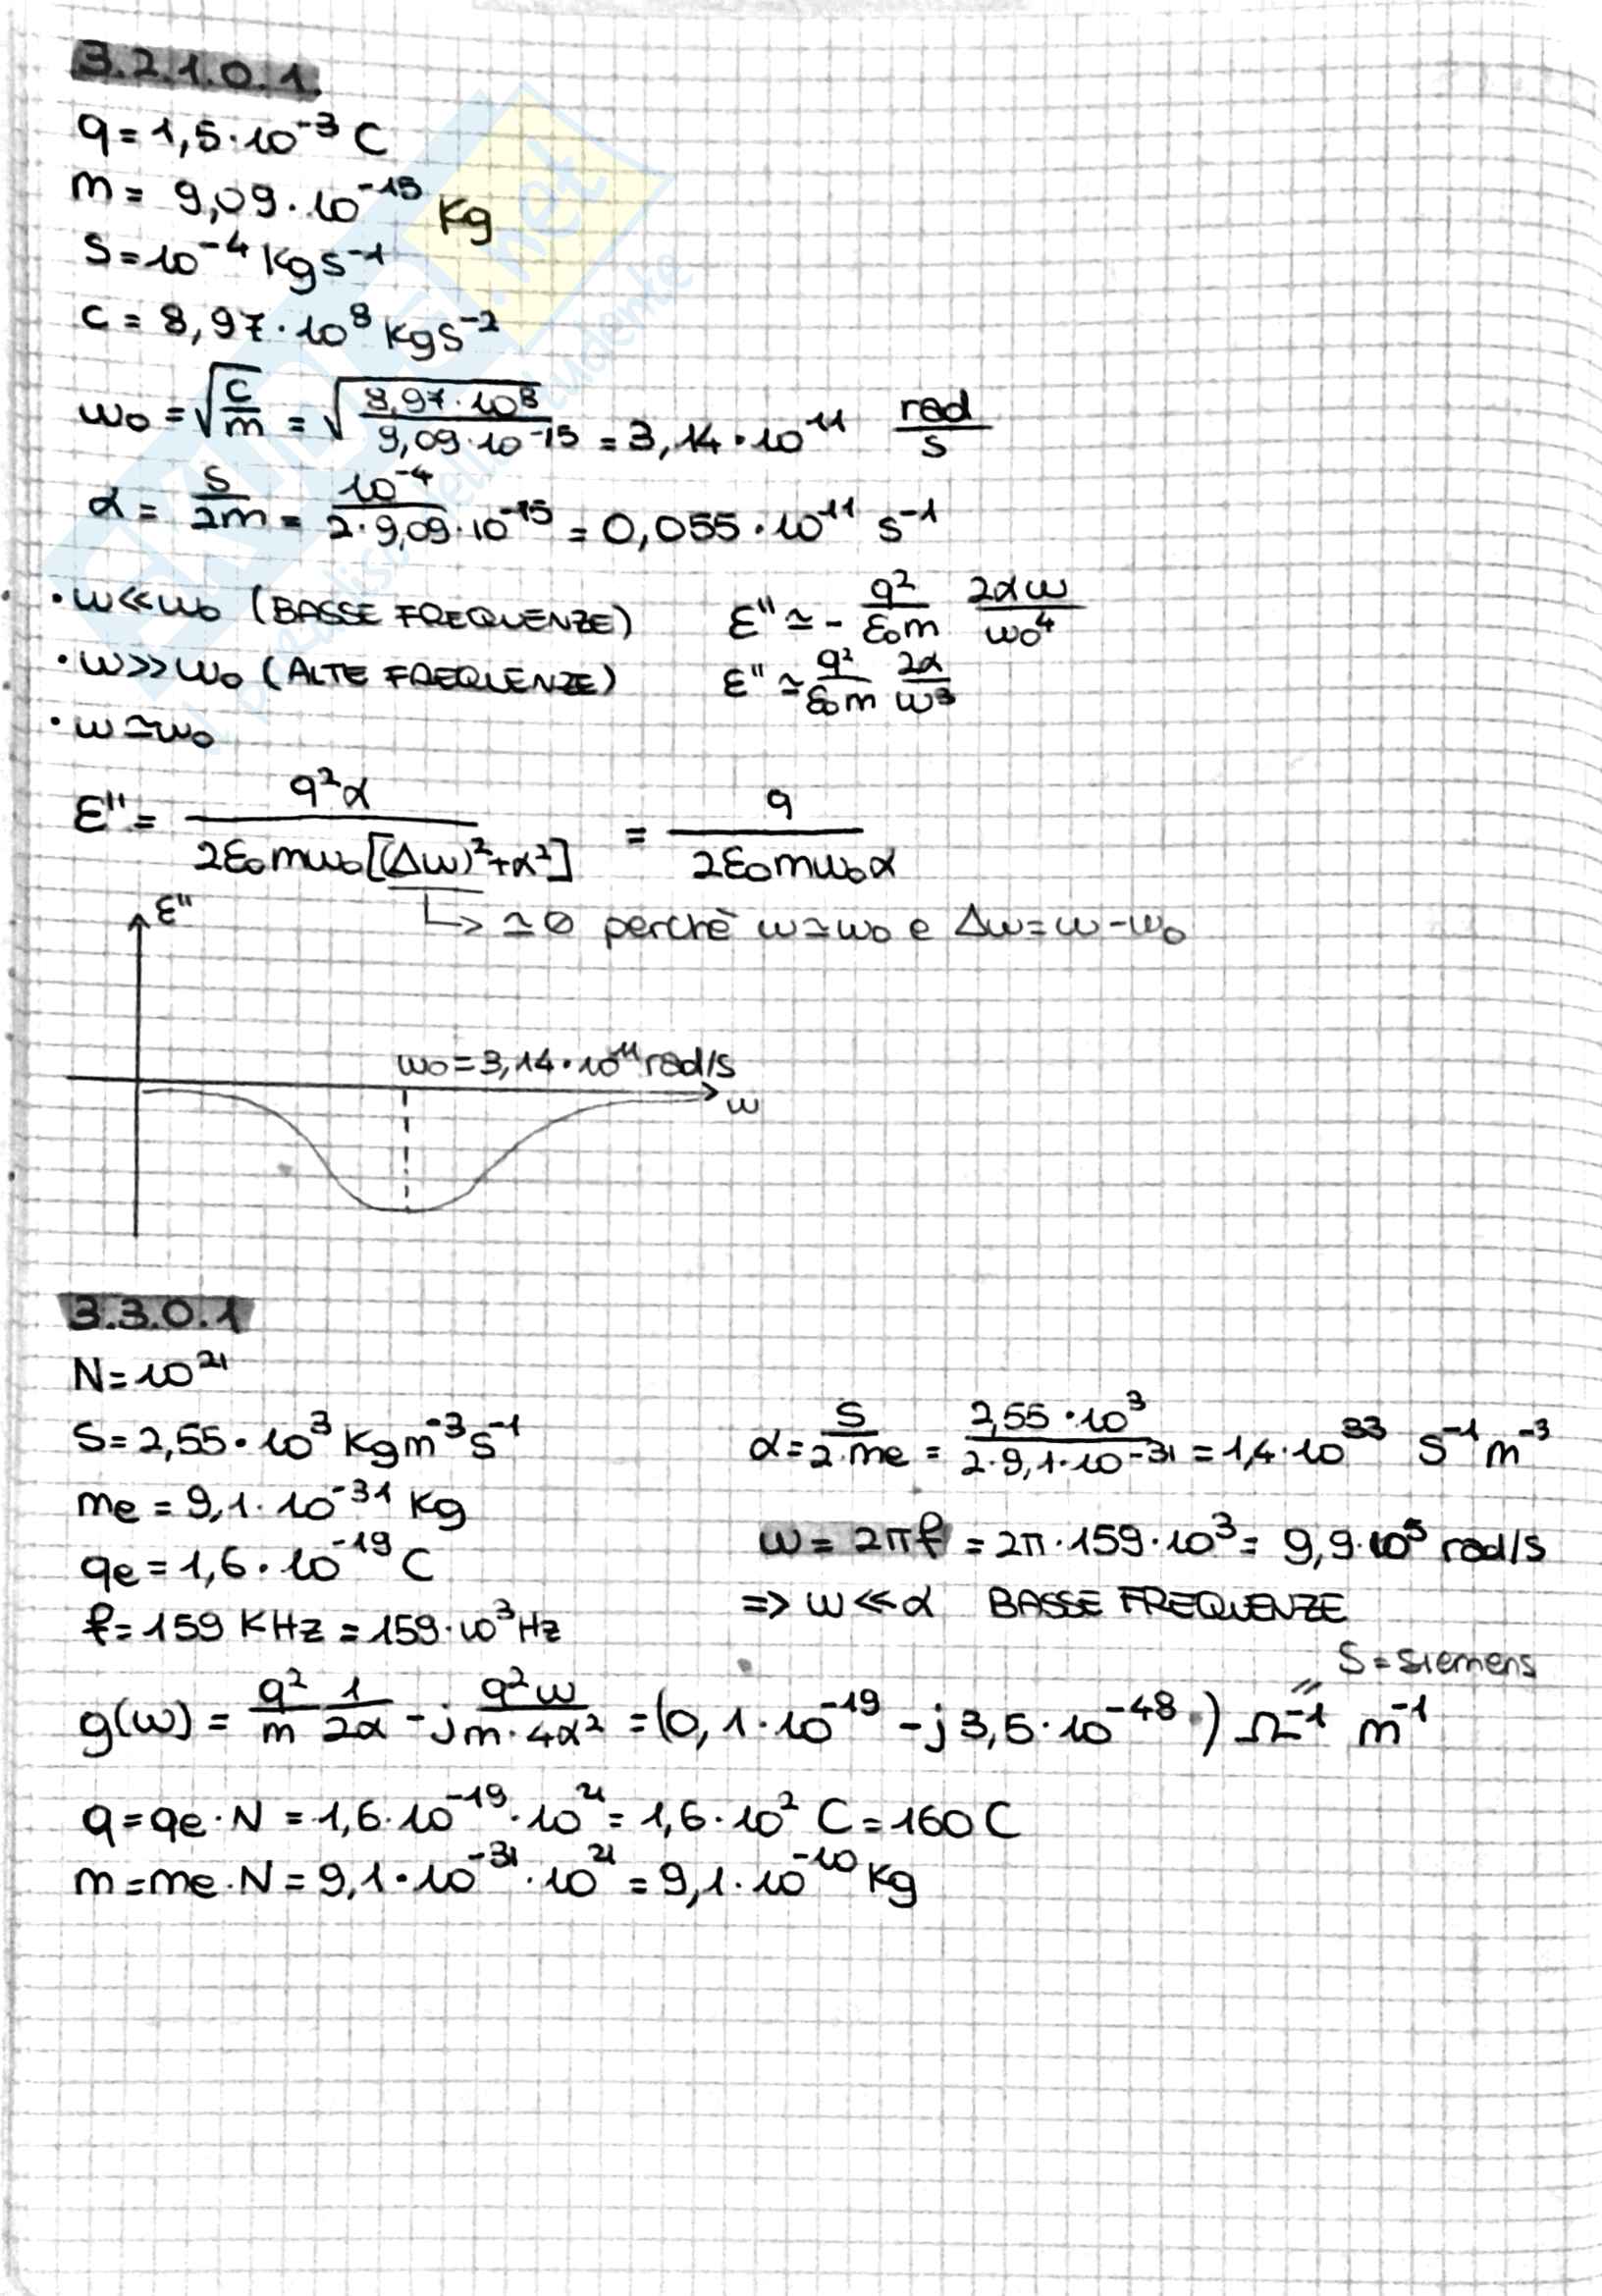 3.2.1.0.1.
q = 1,5·10⁻³ C
m = 9,09·10⁻¹⁵ Kg
S = 10⁻⁴ Kg s⁻¹
c = 8,97·10⁸ Kg s⁻²
ω₀ = √(c/m) = √(8,97·10⁸ / 9,09·10⁻¹⁵) = 3,14·10¹¹ rad/s
α = S/2m = 10⁻⁴ / 2·9,09·10⁻¹⁵ = 0,055·10¹¹ s⁻¹
• ω≪ω₀ (BASSE FREQUENZE) ε'' ≃ - q²/ε₀m 2αω/ω₀⁴
• ω≫ω₀ (ALTE FREQUENZE) ε'' ≃ q²/ε₀m 2α/ω³
• ω≃ω₀
ε'' = q²α / 2ε₀mω₀[(Δω)²+α²] = q / 2ε₀mω₀α
↳ ≃0 perchè ω≃ω₀ e Δω=ω-ω₀
ε''
ω₀ = 3,14·10¹¹ rad/s
ω
3.3.0.1
N = 10²¹
S = 2,55·10³ Kg m⁻³ s⁻¹ α = S/2·me = 2,55·10³ / 2·9,1·10⁻³¹ = 1,4·10³³ s⁻¹ m⁻³
me = 9,1·10⁻³¹ Kg
qe = 1,6·10⁻¹⁹ C ω = 2πf = 2π·159·10³ = 9,9·10⁵ rad/s
f = 159 KHz = 159·10³ Hz ⇒ ω≪α BASSE FREQUENZE
S = siemens
g(ω) = q²/m 1/2α - j q²ω/m·4α² = (0,1·10⁻¹⁹ - j 3,5·10⁻⁴⁸) Ω⁻¹ m⁻¹
q = qe·N = 1,6·10⁻¹⁹·10²¹ = 1,6·10² C = 160 C
m = me·N = 9,1·10⁻³¹·10²¹ = 9,1·10⁻¹⁰ Kg